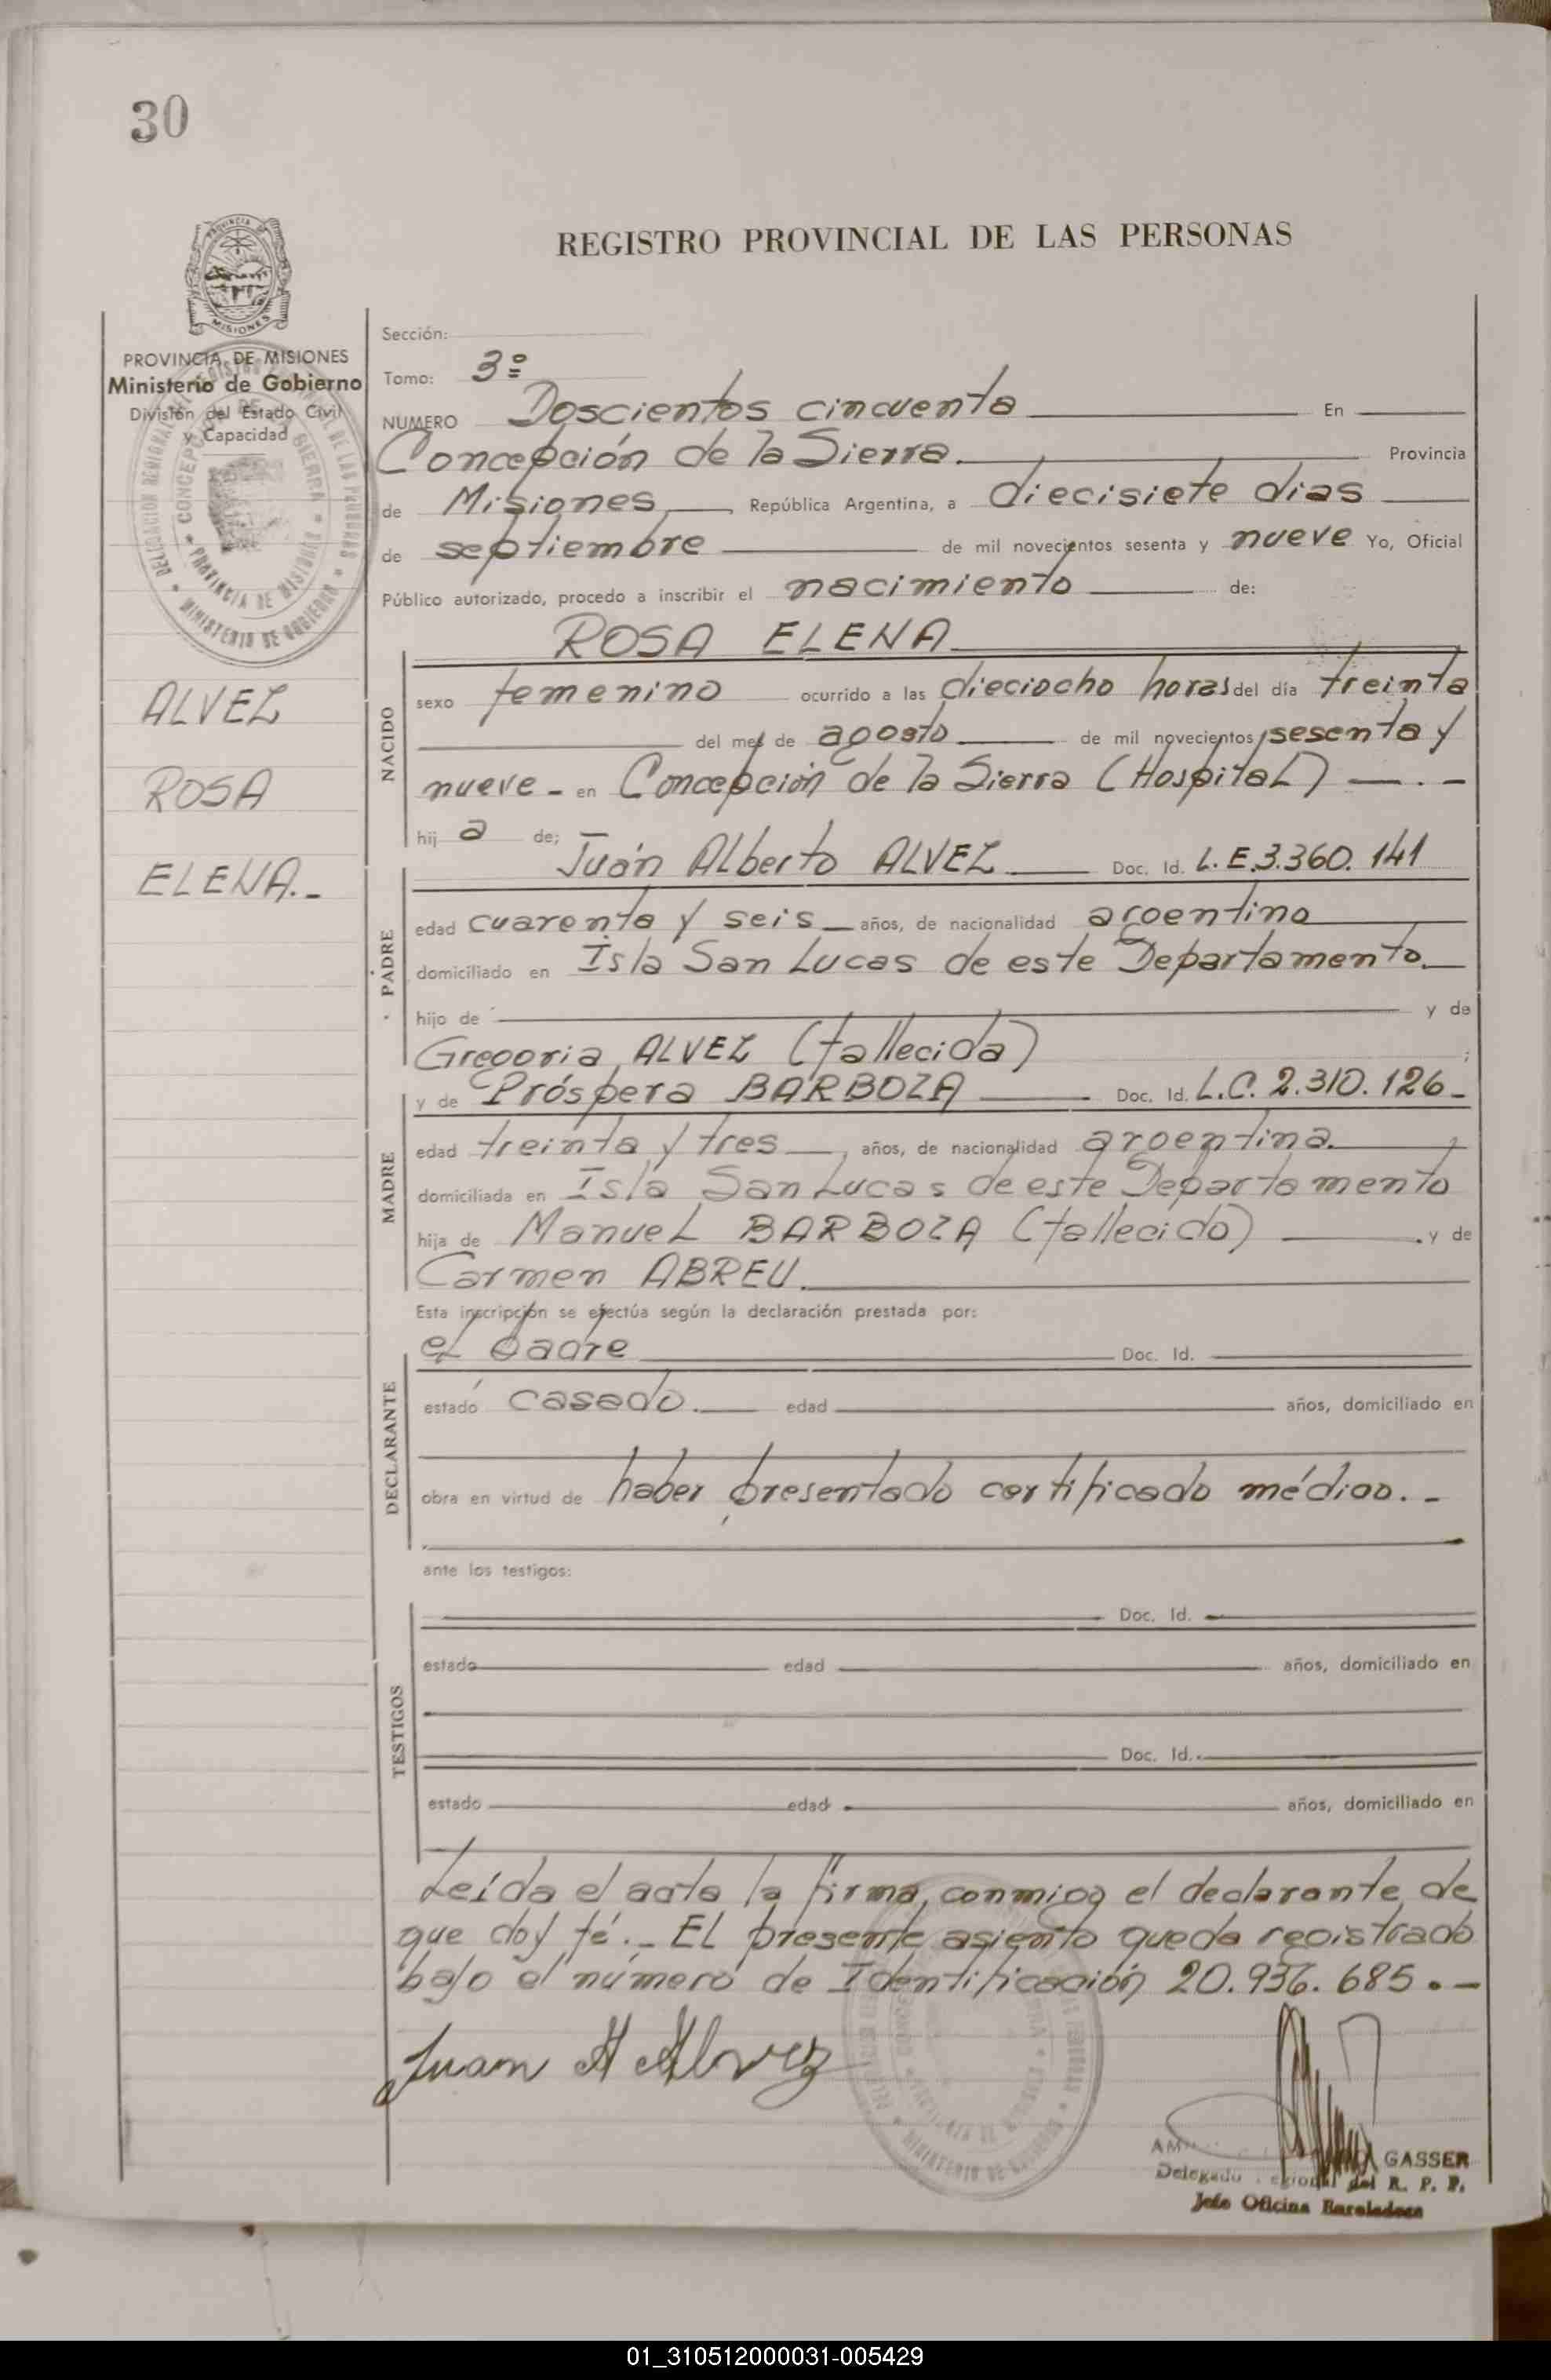 30
REGISTRO PROVINCIAL DE LAS PERSONAS
PROVINCIA
MISIONES
PROVINCIA DE MISIONES
Ministerio de Gobierno
División del Estado Civil
y Capacidad
CONCEPCION DE LA SIERRA
PROVINCIA DE MISIONES
MINISTERIO DE GOBIERNO
ALVEZ
ROSA
ELENA.-
Sección:
Tomo: 3º
NUMERO Doscientos cincuenta En
Concepción de la Sierra. Provincia
de Misiones, República Argentina, a diecisiete dias
de septiembre de mil novecientos sesenta y nueve Yo, Oficial
Público autorizado, procedo a inscribir el nacimiento de:
ROSA ELENA
NACIDO
sexo femenino ocurrido a las dieciocho horas del día treinta
del mes de agosto de mil novecientos sesenta y
nueve - en Concepción de la Sierra (Hospital) -.-
hij a de; Juán Alberto ALVEZ Doc. Id. L.E. 3.360.141
PADRE
edad cuarenta y seis años, de nacionalidad argentina
domiciliado en Isla San Lucas de este Departamento.
hijo de y de
Gregoria ALVEZ (fallecida) ;
y de Próspera BARBOZA Doc. Id. L.C. 2.310.126-
MADRE
edad treinta y tres, años, de nacionalidad argentina.
domiciliada en Isla San Lucas de este Departamento
hija de Manuel BARBOZA (fallecido) y de
Carmen ABREU.
Esta inscripción se efectúa según la declaración prestada por:
el padre Doc. Id.
DECLARANTE
estado casado. edad años, domiciliado en
obra en virtud de haber presentado certificado médico.-
ante los testigos:
Doc. Id.
TESTIGOS
estado edad años, domiciliado en
Doc. Id.
estado edad años, domiciliado en
Leída el acta la firma, conmigo el declarante, de
que doy fé.- El presente asiento queda registrado
bajo el número de Identificación 20.936.685.-
Juan A Alvez
GASSER
Delegado Regional del R. P. P.
Jefe Oficina
01_310512000031-005429